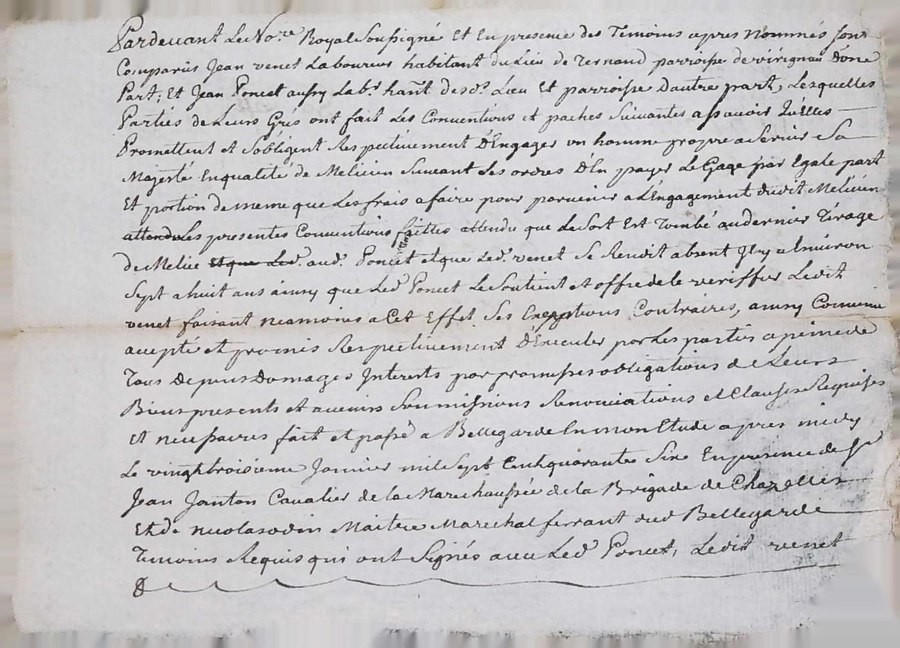 Pardevant Le No.re Royal Soussigné et En presence des Temoins apres Nommés sont
Comparûs Jean venet Laboureur habitant du Lieu de Ternaud parroisse de virignau D'une
Part; Et Jean Poncet aussy Lab.r han.t desd.s Lieu Et parroisse D'autre part, Lesquelles
Parties de Leurs Grés ont fait Les Conventions et paches Suivantes assavoir Qu'elles
Promettent et S'obligent Respectivement D'Engager un homme propre a Servir Sa
Majesté En qualité de Melicien Suivant Ses ordres D'En payer Le Gage par Egale part
Et portion de meme que Les frais a faire pour parvenir a L'Engagement dudit Melicien
attendu Les presentes Conventions faittes attendu que Le Sort Est Tombé au dernier Tirage
de Melice et que Led. aud. Poncet et que Led. venet Se Rendit absent Il y a Environ
Sept a huit ans ainsy que Led Poncet Le Soutient et offre de Le veriffier Ledit
venet faisant neamoins a Cet Effet Ses Exceptions Contraires, ainsy Convenu
accepté et promis Respectivement D'Executer par Les parties a peine de
Tous Depens Domages Interets par promesses obligations de Leurs
Biens presents et avenirs Soumissions Renonciations et Clauses Requises
Et necessaires fait et passé a Bellegarde En mon Etude apres midy
Le vingt troisieme Janvier mil Sept Cent quarante Six En presence de S.r
Jean Janton Cavalier de la Marechaussée de la Brigade de Chazelles
Et de nicolas odin Maitre Marechal ferrant dud Bellegarde
Temoins Requis qui ont Signés avec Led Poncet, Ledit venet